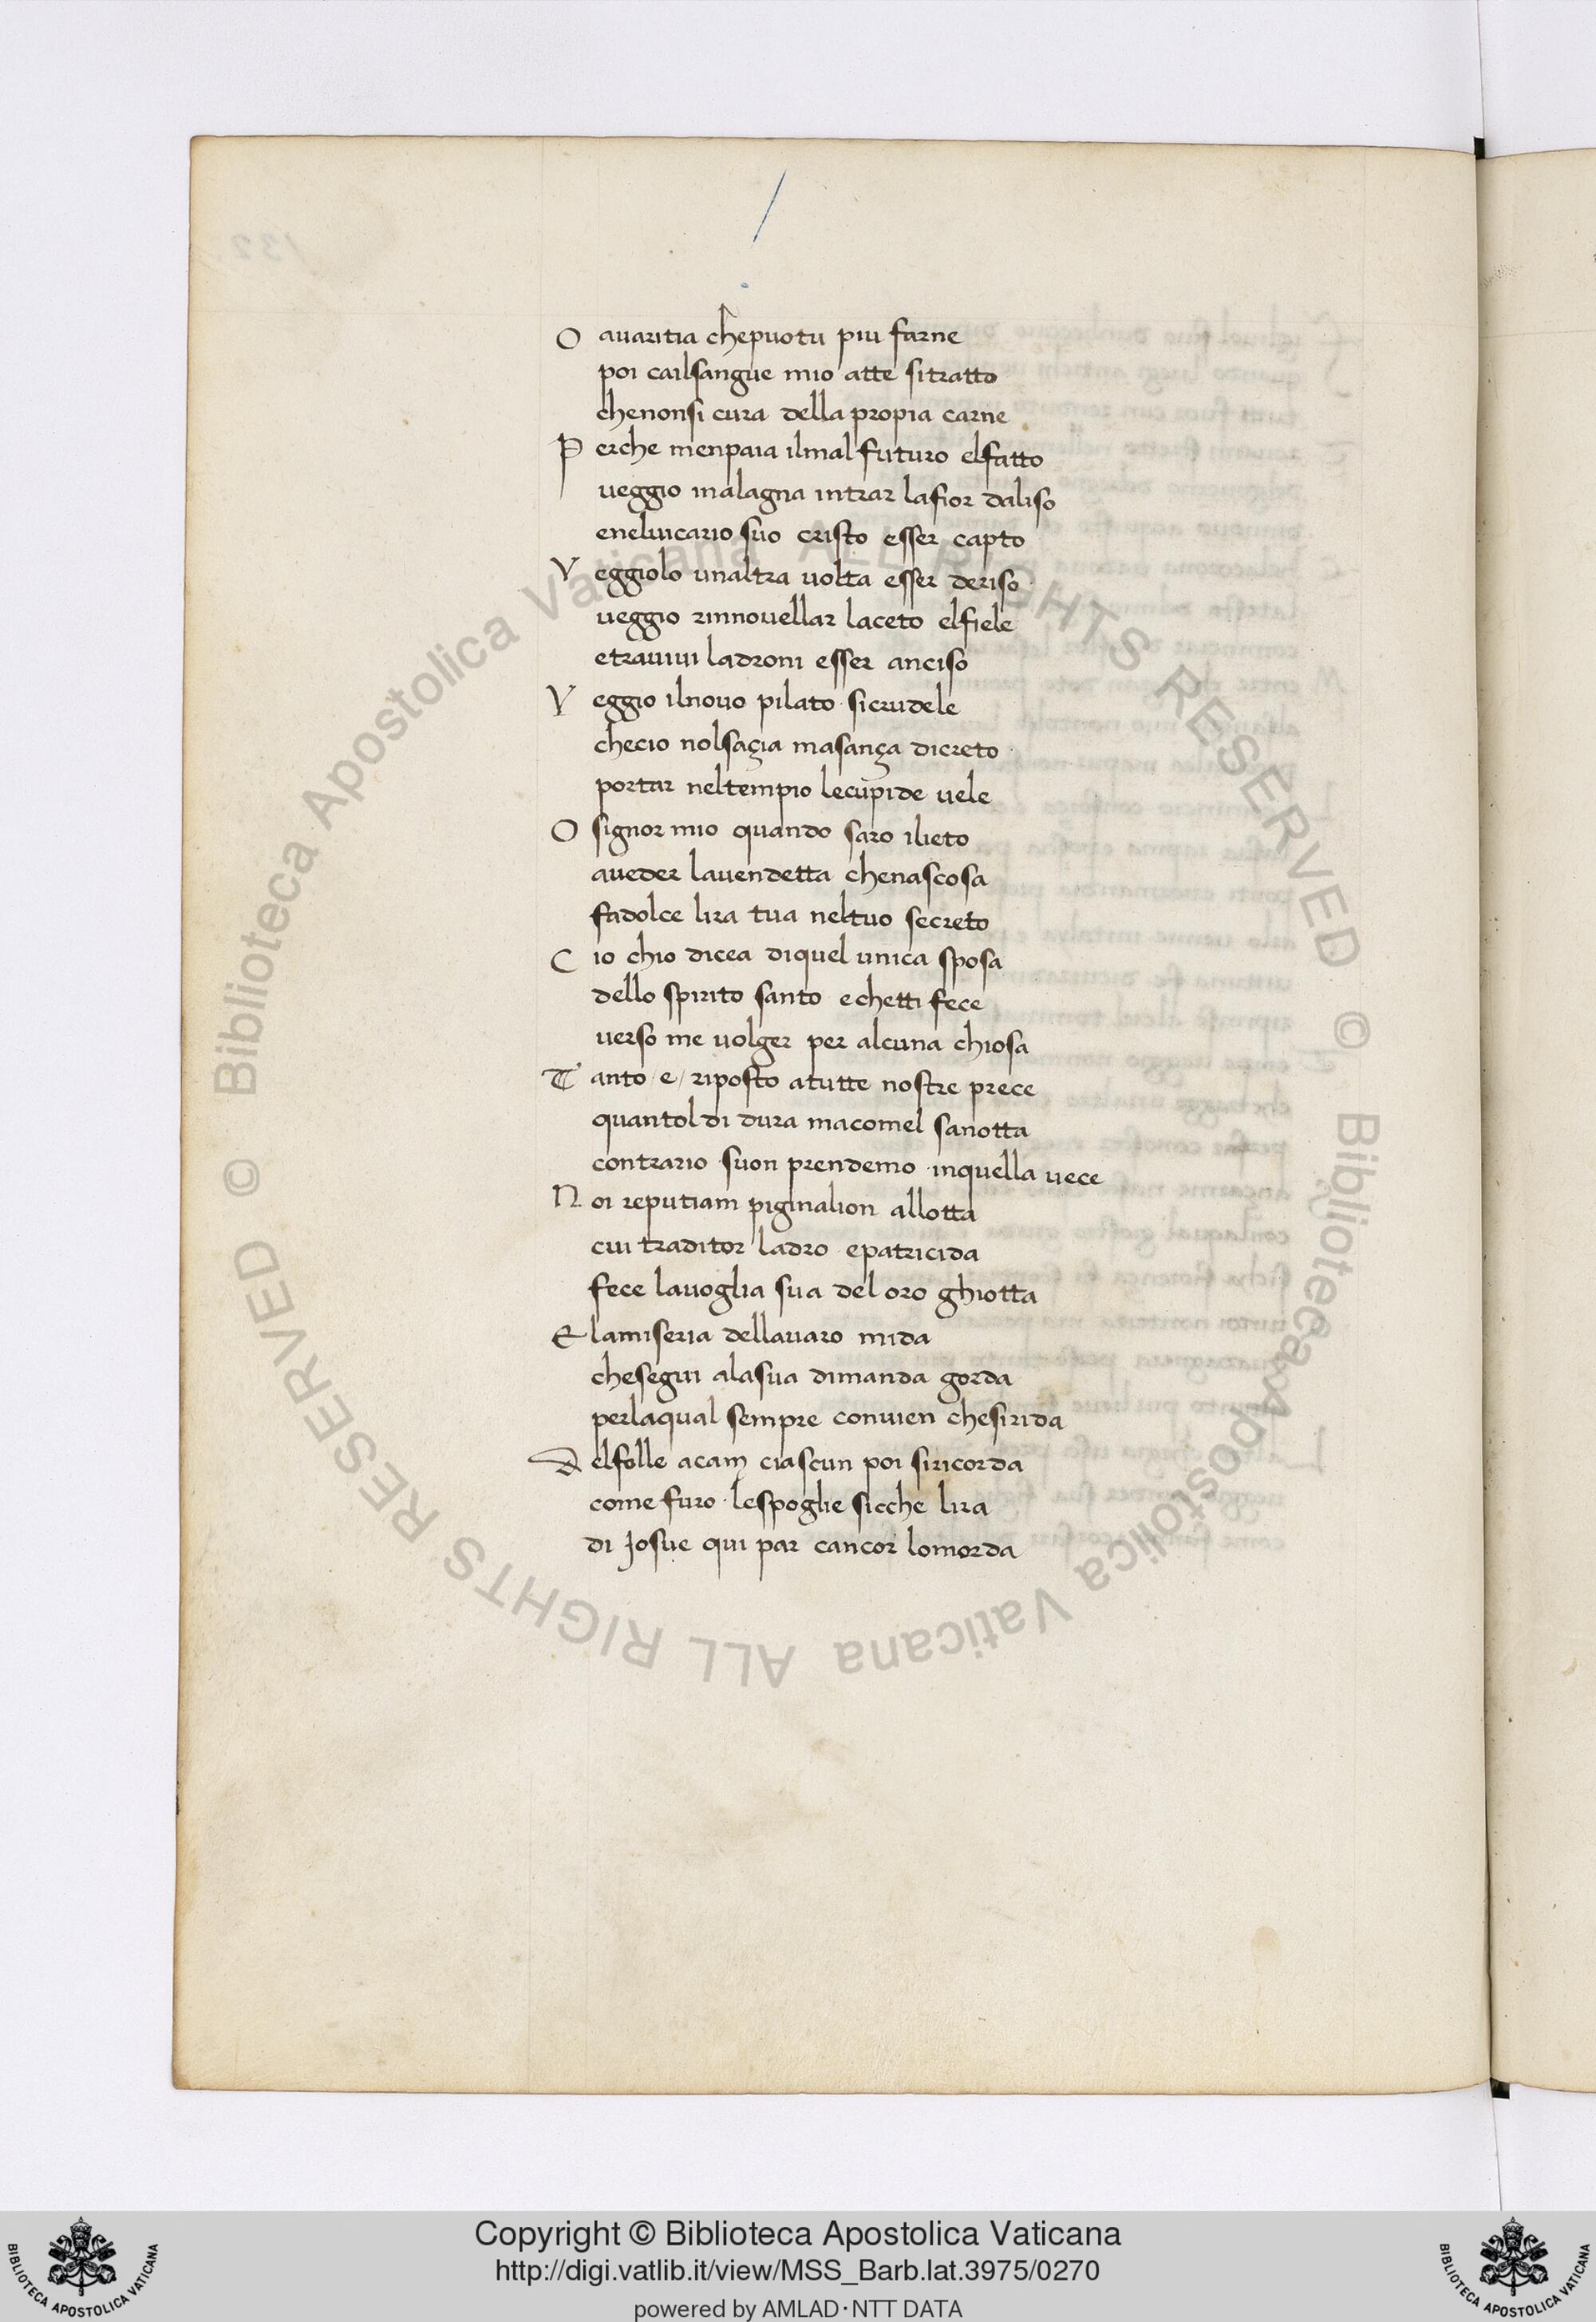 O avaritia chepuotu piu farne
poi cailsangue mio atte sitratto
chenonsi cura della propia carne
P erche menpaia ilmal futuro elfatto
ueggio inalagna intrar lafior daliso
eneluicario suo cristo esser capto
V eggiolo unaltra uolta esser deriso
ueggio rinnouellar laceto elfiele
etrauiui ladroni esser anciso
V eggio ilnouo pilato sicrudele
checio nolsaçia masança dicreto
portar neltempio lecupide uele
O signor mio quando saro ilieto
aueder lauendetta chenascosa
fadolce lira tua neltuo secreto
C io chio dicea diquel unica sposa
dello spirito santo echetti fece
uerso me uolger per alcuna chiosa
T anto /e/ riposto atutte nostre prece
quantol di dura macomel sanotta
contrario suon prendemo inquella uece
N oi reputiam pigmalion allotta
cui traditor ladro epatricida
fece lauoglia sua del oro ghiotta
E lamiseria dellauaro mida
chesegui alasua dimanda gorda
perlaqual sempre conuien chesirida
D elfolle acam ciascun poi siricorda
come furo lespoglie sicche lira
di Josue qui par cancor lomorda
© Biblioteca Apostolica Vaticana ALL RIGHTS RESERVED © Biblioteca Apostolica Vaticana ALL RIGHTS RESERVED
Copyright © Biblioteca Apostolica Vaticana
http://digi.vatlib.it/view/MSS_Barb.lat.3975/0270
powered by AMLAD·NTT DATA
BIBLIOTECA APOSTOLICA VATICANA
BIBLIOTECA APOSTOLICA VATICANA